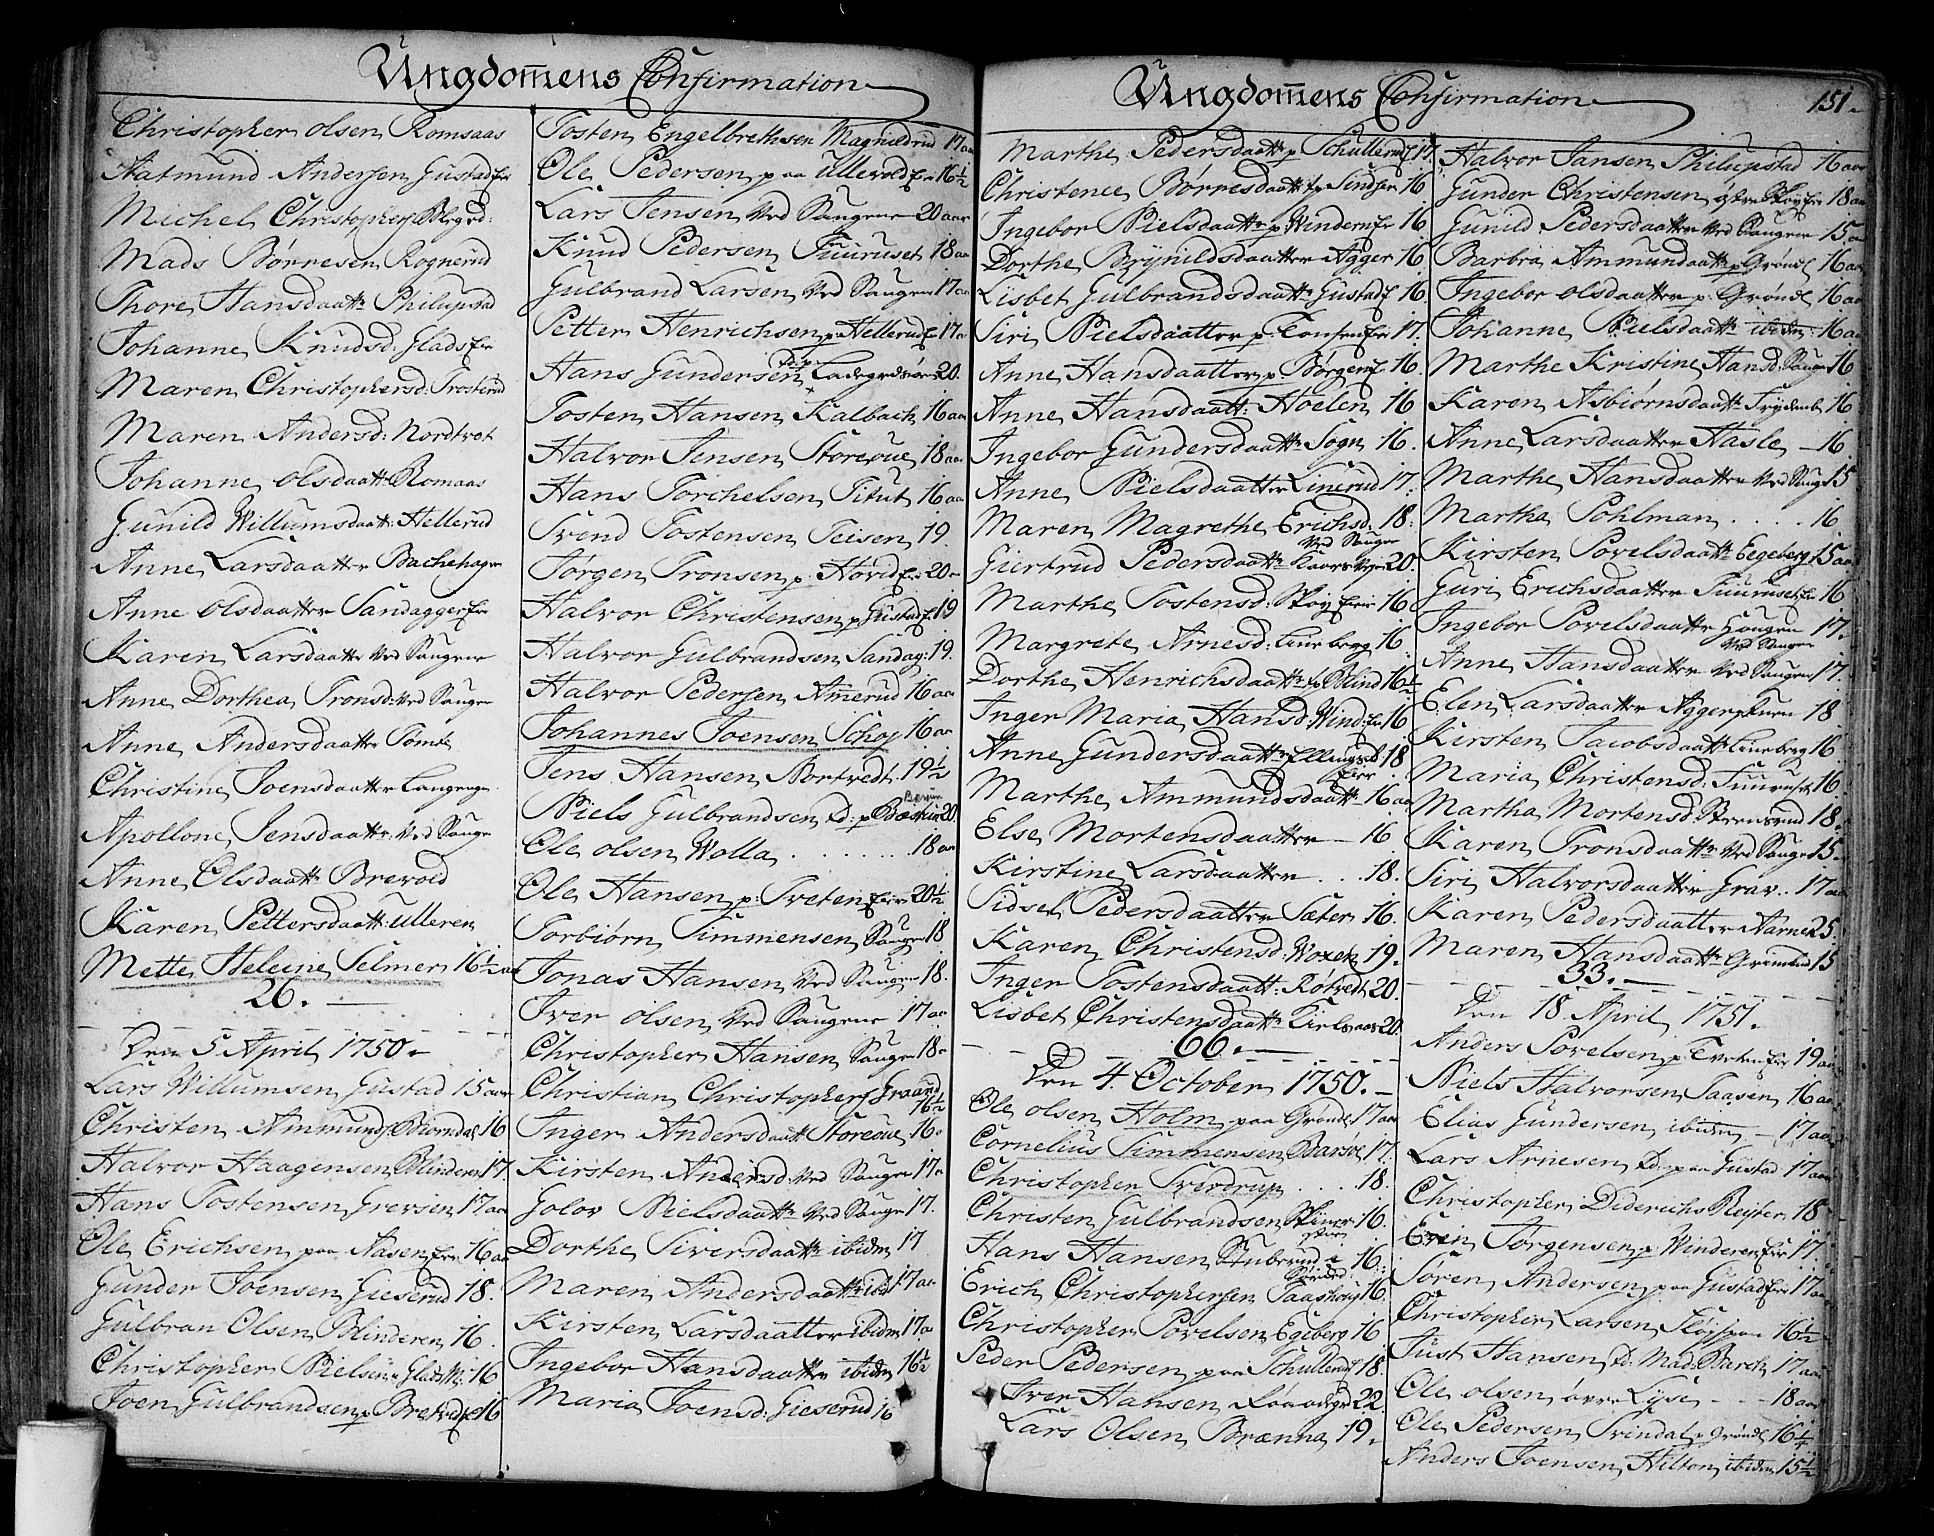 Ungdommens Confirmation
Christopher olsen Romsaas
Aatmund Andersen Gustad Eie
Michel Christophers Bleged:
Mads Børresen Rognerud
Thore Hansdaatt: Philipstad
Johanne Knudsd. Glads Eie
Maren Christophersd: Trosterud
Maren Andersd: Nordtvet
Johanne olsdaatt: Romsaas
Gunild Willumsdaatt: Hellerud
Anne Larsdaatter Bachehagen
Anne olsdaatter Sandagger Eie
Karen Larsdaatter Ved Saugene
Anne Dorthea Tronsd: Ved Saugen
Anne Andersdaatter Tømte
Christine Joensdaatter Langenge
Apollone Jensdaatter Ved Sauge
Anne Olsdaatt: Brevold
Karen Pettersdaatt: Ulleren
Mette Heleine Selmer 16½ aar
26.
Den 5 April 1750.
Lars Willumsen Gustad 15 aar
Christen Ammunds Biørndal 16
Halvor Haagensen Blinderen 17.
Hans Tostensen Grevsen 17 aar
Ole Erichsen paa Aasen Eie 16 aar
Gunder Joensen Gieserud 18.
Gulbran Olsen Blinderen 16
Christopher Nielsen Glads M: 16
Joen Gulbrandsen p Bretvedt 16
Tosten Engelbrethsen Magnildrud 17 aar
Ole Pedersen paa Ullevold Eie 16½
Lars Jensen Ved Saugene 20 aar
Knud Pedersen Fuuruset 18 aar
Gulbrand Larsen Ved Saugene 17 aar
Petter Henrichsen paa Hellerud Eie 17 a
Hans Gundersen Ladegrdsøen 20.
Tosten Hansen Kalbach 16 aar
Halvor Jensen Storeoue 18 aar
Hans Torchelsen Titut 16 aar
Svend Tostensen Teisen 19
Jørgen Tronsen p: Hovid Eie 20
Halvor Christensen p Gustad E. 19
Halvor Gulbrandsen Sandag: 19.
Halvor Pedersen Ammerud 16 aar
Johannes Joensen Schoj 16 aar
Jens Hansen Nortvedt 19½
Niels Gulbrandsen D: p Bæstun 20.
Ole olsen Wolla . . . . 18 aar
Ole Hansen p: Tveten Eie 20½
Torbiørn Simmensen Sauge 18
Jonas Hansen Ved Saugene 18.
Iver olsen Ved Saugene 17 aar
Christopher Hansen Sauge 18
Christian Christophers Graarud
16½
Inger Andersdaatt: Storeoue 16
Kirsten Andersd: Ved Saugen 17 a
Golov Nielsdaatter Ved Sauge 17.
Dorthe Siversdaatter ibidem 17
Maren Andersdaatter ibid 17 aar
Kirsten Larsdaatter ibidem 17 a
Ingebor Hansdaatter ibidem 16½
Maria Joensd: Gieserud 16
Ungdommens Confirmation
151.
Marthe Pedersdaatter p Schullerud 17.
Christence Børresdaatter Sinsen 16
Ingebor Nielsdaatter p Windern Eie 16
Dorthe Brynildsdaatter Agger 16
Lisbet Gulbrandsdaatt: Gustad E 16.
Siri Nielsdaatter p: Tonsen Eie 17.
Anne Hansdaatter p: Børgen E 16.
Anne Hansdaatt: Hoelen 16
Ingebor Gundersdaatter Sogn 16.
Anne Nielsdaatter Linerud 17.
Maren Magrethe Erichsd. 18.
Ved Sauger
Giertrud Pedersdaatt: Kaarsveje 20.
Marthe Tostensd: Skoy Eie 16
Margrete Arnesd: Lineberg 16.
Dorthe Henrichsdaatt: p Blind 16½
Inger Maria Hansd: Wind: Eie 16
Anne Gundersdaatter Ellingsrd 18
Eier
Marthe Ammundsdaatt: 16 aar
Else Mortensdaatter 16
Kirstine Larsdaatter . . . 18.
Sidsel Pedersdaatter Sæter 16.
Karen Christensd: Woxen 19.
Inger Tostensdaatt: Røtvedt 20.
Lisbet Christensdaatt: Kielsaas 20.
66.
Den 4. October 1750.
Ole olsen Holm paa Grønd: 17 aar
Cornelius Simmensen Barsøe 17.
Christopher Sverdrup . . . . 18.
Christen Gulbrandsen 16.
Hans Hansen Stuberud 16.
Erich Christophersen Taashoug 16
Christopher Povelsen Egeberg 16
Peder Pedersen paa Schullerud 18.
Iver Hansen 22.
Lars Olsen Brænna 19.
Halvor Jansen Philipstad 16 aar
Gunder Christensen østre Skoy Eie 18 aar
Gunild Pedersdaatter Ved Saugene 15
Barbra Ammundsdaatt: p Grønd: 16 aar
Ingebor olsdaatter p: Grønd: 16 aar
Johanne Nielsdaatt: ibidem: 16 aar
Marthe Kristine Hansd: Sauge 16
Karen Asbiørnsdaatt: Frydenb 16
Anne Larsdaatter Hasle 16.
Marthe Hansdaatter Ved Sauge 15
Martha Pohlman . . . . 16
Kirsten Povelsdaatt: Egeberg 15 aar
Guri Erichsdaatter Fuuruset Eie 16
Ingebor Povelsdaatter Haugen 17.
Ved Saugene
Anne Hansdaatter Ved Saugene 17.
Elen Larsdaatter Aggers 18
Kirsten Jacobsdaatt: Lineberg 16
Maria Christensd: Fuuruset 16
Martha Mortensd Steensrud 18.
Karen Tronsdaatter Ved Sauge 15.
Siri Halvorsdaatter Grav . . 17 aar
Karen Pedersdaatter Aarne 25.
Maren Hansdaatt: Grimelund 15
33.
Den 18 April 1751.
Anders Povelsen p: Tveten Eie 19 aar
Niels Halvorsen Taasen 16 aar
Elias Gundersen ibidem 17 aar
Lars Arnesen D: paa Gustad 17 aar
Christopher Diderichs Rejter 18
Even Jørgensen p Winderen Eie 17.
Søren Andersen paa Gustad Eie 17 aar
Christopher Larsen Fløjspaa 16½
Just Hansen D: Mad: Barch 17 aar
Ole olsen øvre Lysè . . . 18 aar
Ole Pedersen Trindal p Grønd: 16¼
Anders Joensen Hilton ibidem 15½